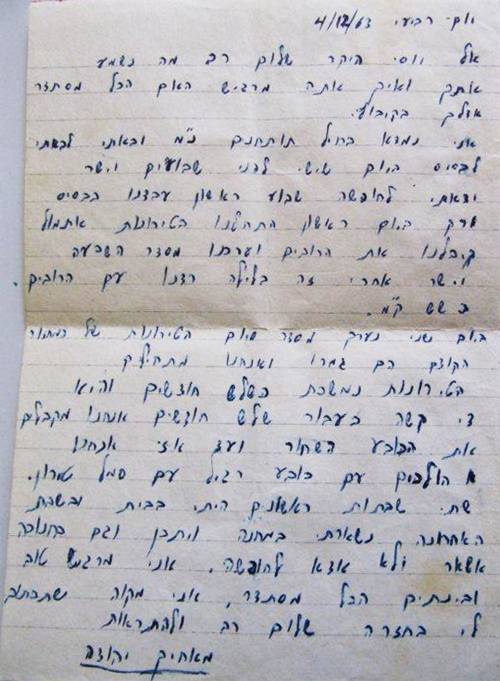 יום רביעי 4/12/63
אל יוסי היקר שלום רב מה נשמע
אתך ואיך אתה מרגיש האם הכל מסתדר
אצלך בקיבוץ.
אני נמצא בחיל תותחנים נ"מ ובאתי לבאתי
לבסיס ביום שישי לפני שבועיים וישר
יצאתי לחופשה שבוע ראשון עבדנו בבסיס
ורק ביום ראשון התחלנו הטירונות אתמול
קיבלנו את הרובים וערכנו מסדר השבעה
וישר אחרי זה בלילה רצנו עם הרובים
כ שש ק"מ.
ביום שני נערך מסדר סיום הטירונות של המחזור
הקודם הם גמרו ואנחנו מתחילים
הטירונות נמשכת כשלש חודשים והיא
די קשה כעבור שלש חודשים אנחנו מקבלים
את הכובע השחור ועד אז אנחנו
הולכים עם כובע רגיל עם סמל טירון.
שתי שבתות ראשונים הייתי בבית ובשבת
האחרונה נשארתי במחנה ויתכן וגם בחנוכה
אשאר ולא אצא לחופשה. אני מרגיש טוב
ובינתים הכל מסתדר, אני מקוה שתכתוב
לי בחזרה שלום רב ולהתראות
מאחיך יהודה